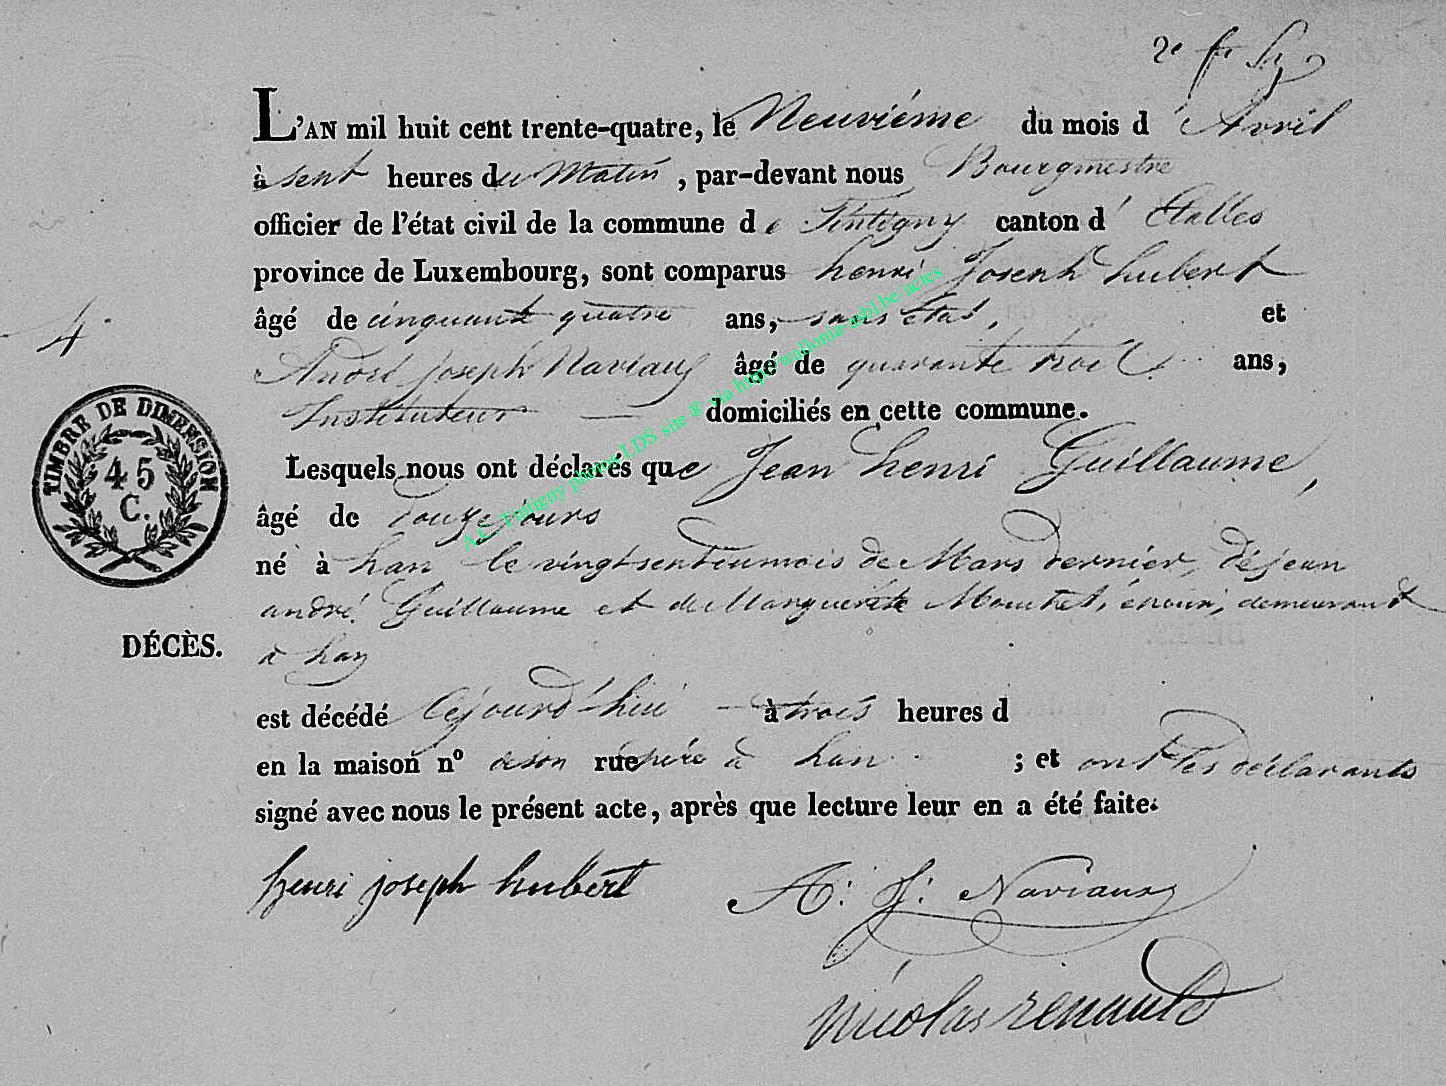 2e fe
L'AN mil huit cent trente-quatre, le Neuviéme du mois d'Avril
à sept heures du Matin, par-devant nous Bourgmestre
officier de l'état civil de la commune de Tintigny canton d'Etalles
province de Luxembourg, sont comparus henri Joseph hubert
âgé de cinquante quatre ans, sans état, et
4.
André joseph Naviaux âgé de quarante trois ans,
Instituteur — domiciliés en cette commune.
TIMBRE DE DIMENSION
45
C.
Lesquels nous ont déclarés que Jean henri Guillaume,
âgé de douze jours
né à han le vingt sept du mois de Mars dernier, de jean
andré Guillaume et de Marguerite époux, demeurant
DÉCÈS.
à han
est décédé cejourd'hui à trois heures d
en la maison n° de son rue père à han ; et ont les déclarants
signé avec nous le présent acte, après que lecture leur en a été faite.
henri joseph hubert A: J: Naviaux
nicolas renauld
A.C. Tintigny photos LDS site ® via http://wallonia-asbl.be/actes